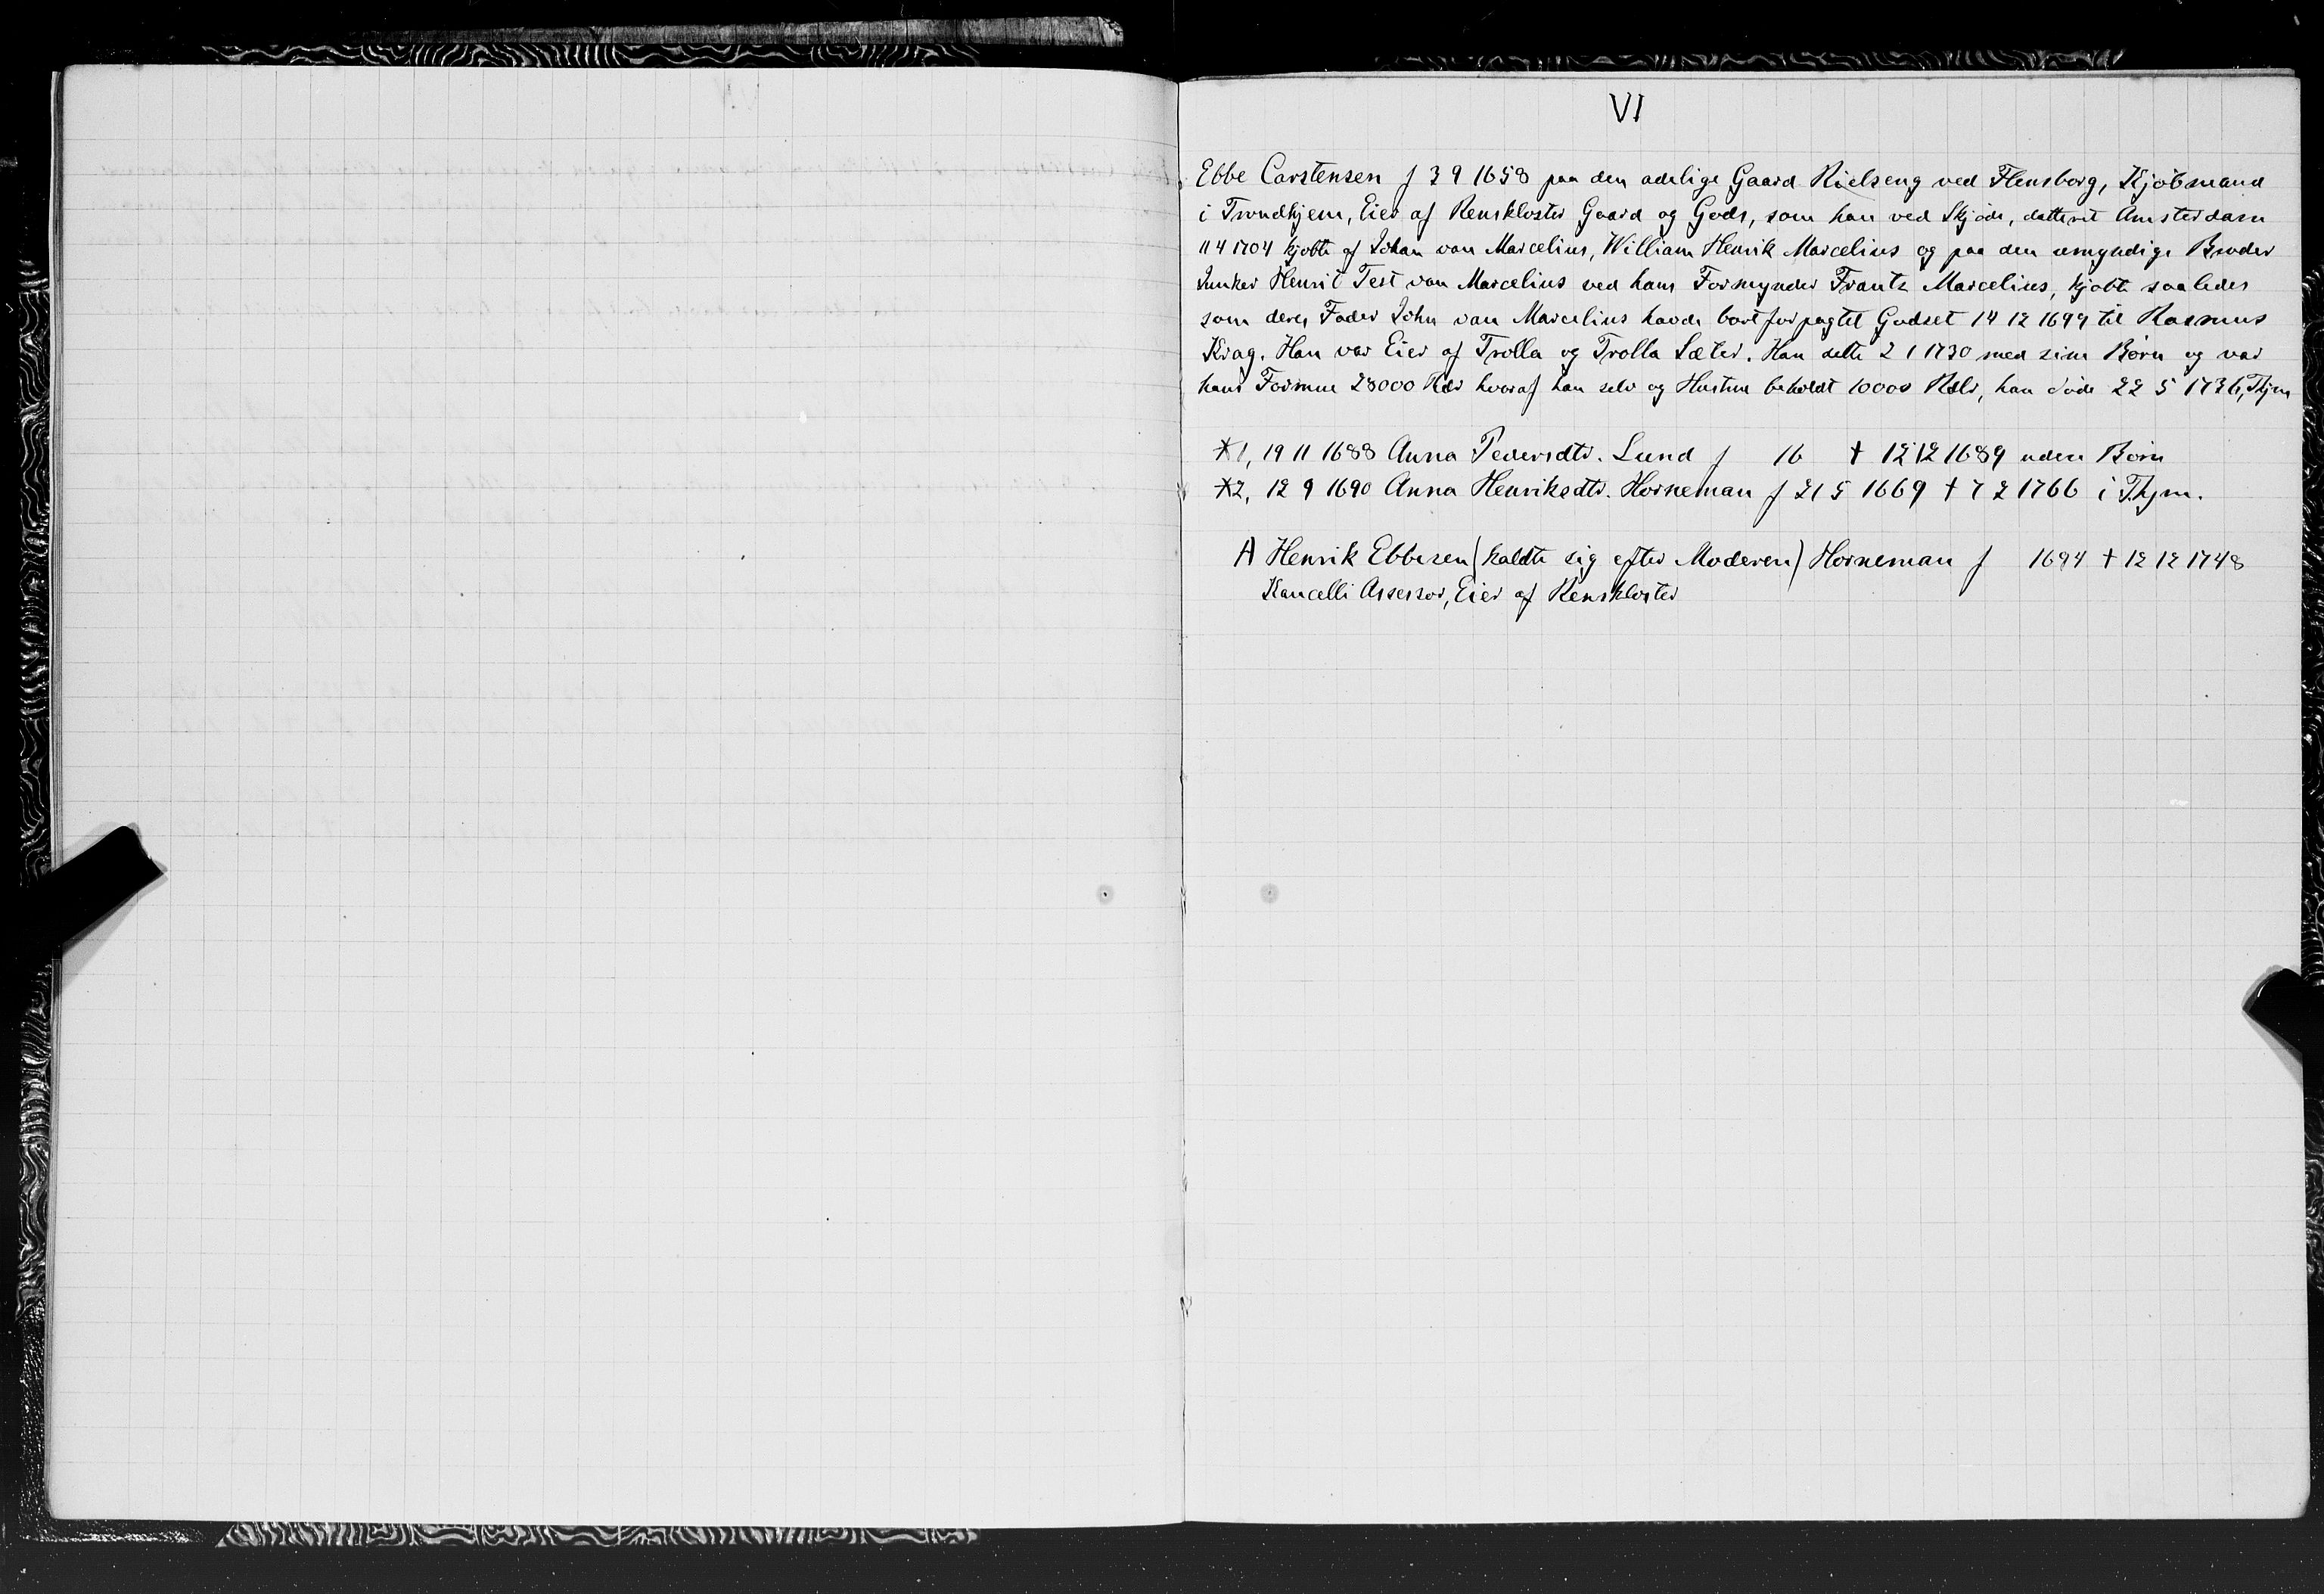 VI
Ebbe Carstensen f 3 9 1658 paa den adelige Gaard Rielseng ved Flensborg, Kjöbmand
i Trondhjem, Eier af Renskloster Gaard og Gods, som han ved Skjöde, datteret Amsterdam
11 4 1704 kjøbte af Johan van Marcelius, William Henrik Marcelius og paa den umyndige Broder
Junker Henrik Test van Marcelius ved hans Formynder Frantz Marcelius, kjøbte saaledes
som deres Fader John van Marcelius havde bortforpagtet Godset 14 12 1699 til Rasmus
Krag. Han var Eier af Trolla og Trolla Sæter. Han delte 2 1 1730 med sine Børn og var
hans Formue 28000 Rdlr hvoraf han selv og Hustru beholdt 10000 Rdlr, han døde 22 5 1736, Thjm
*1, 19 11 1688 Anna Pedersdtr. Lund f 16 † 12 12 1689 uden Børn
*2, 12 9 1690 Anna Henriksdtr. Horneman f 21 5 1669 † 7 2 1766 i Thjm.
A Henrik Ebbesen (kaldte sig efter Moderen) Horneman f 1694 † 12 12 1748
Kancelli Assessor, Eier af Renskloster